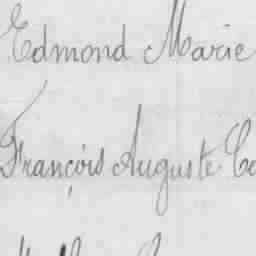 Edmond Marie
François Auguste Co